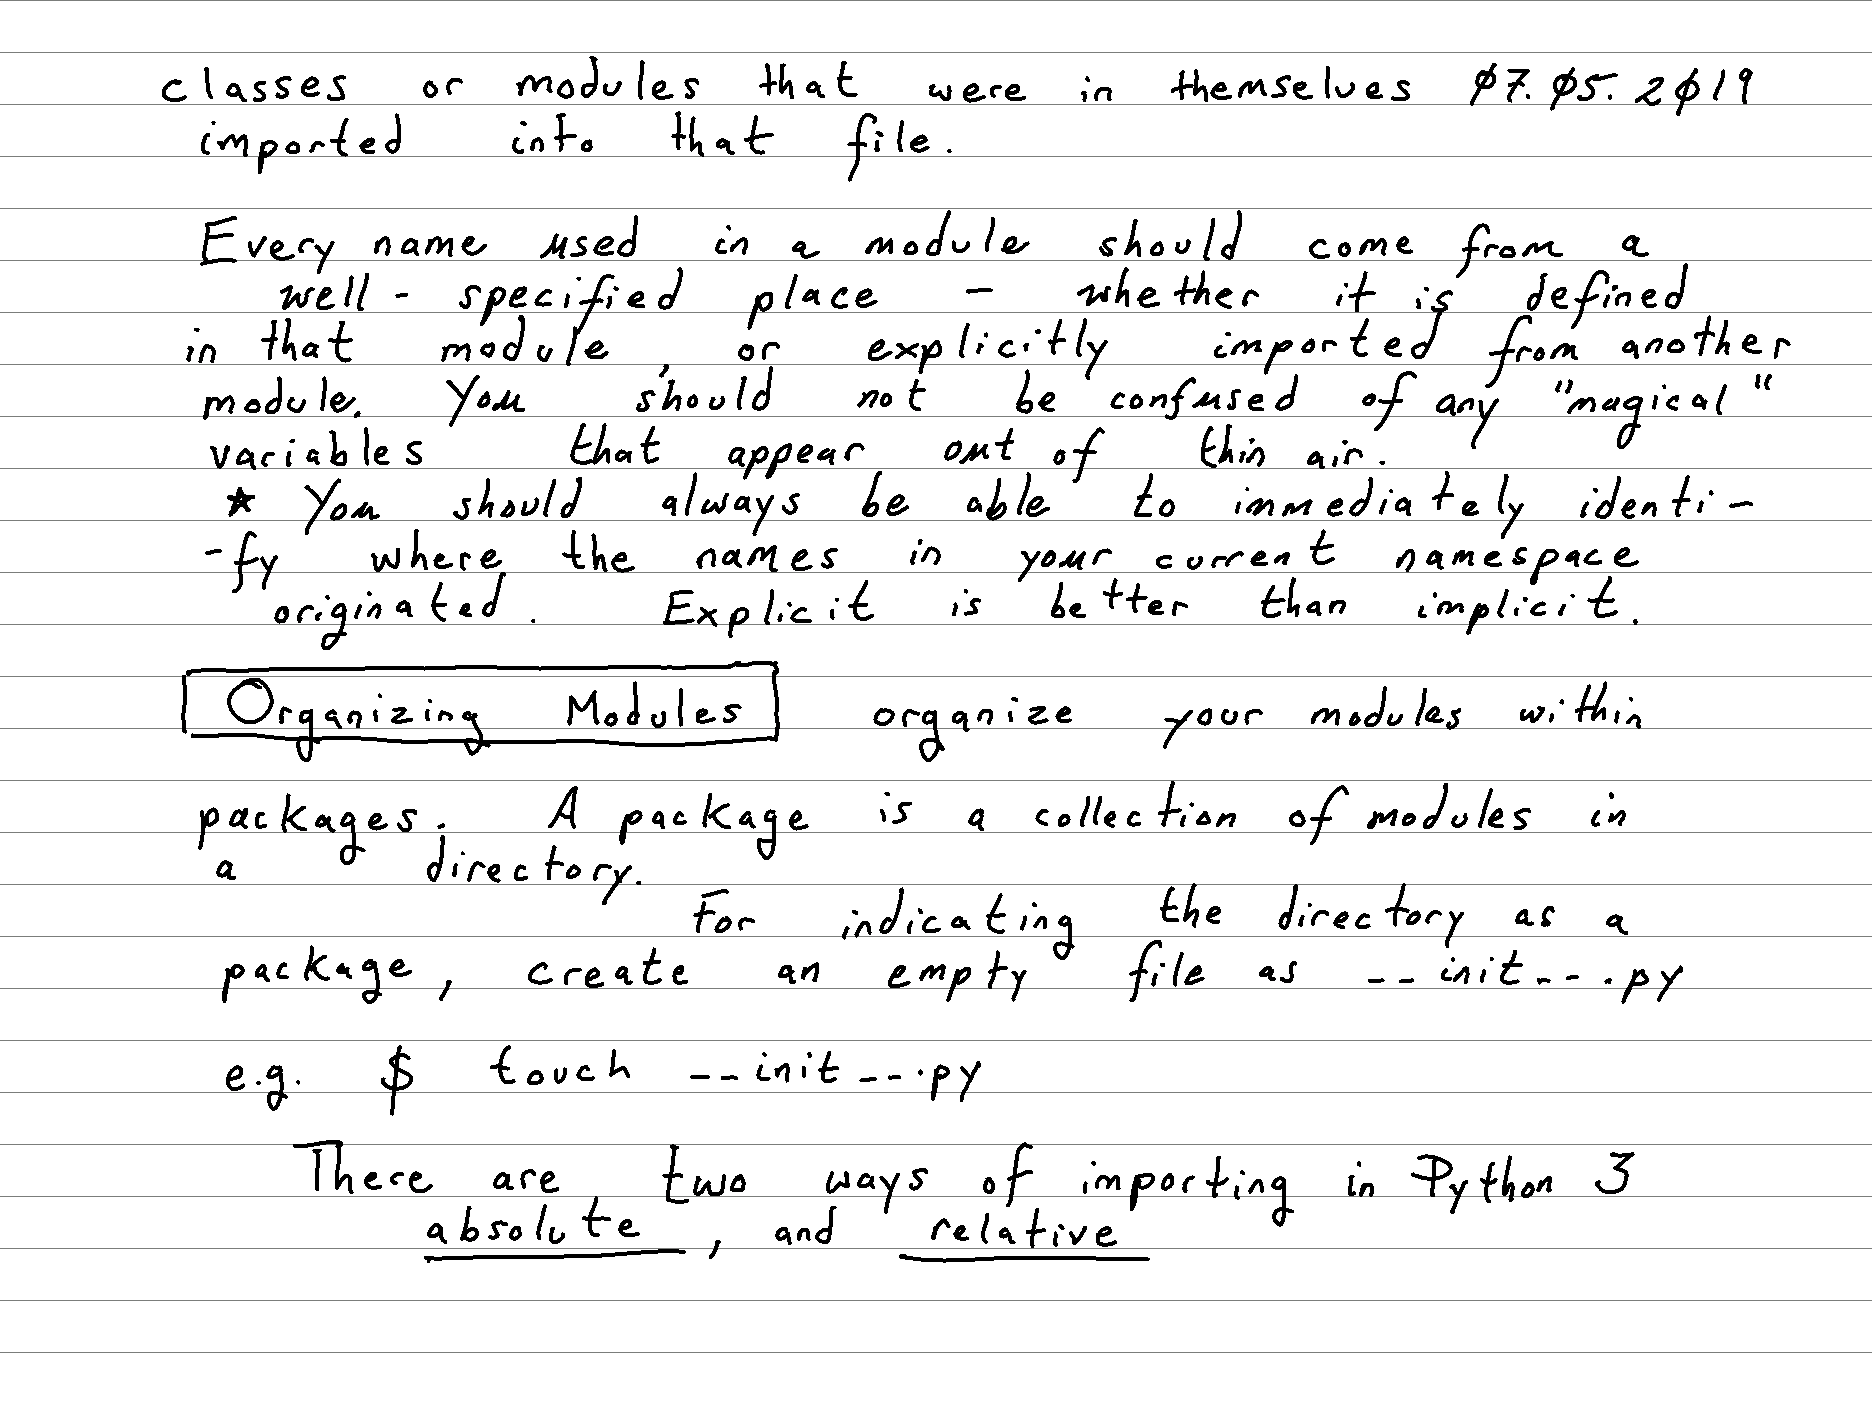 classes or modules that were in themselves 07.05.2019
imported into that file.
Every name used in a module should come from a
well - specified place - whether it is defined
in that module, or explicitly imported from another
module. You should not be confused of any "magical"
variables that appear out of thin air.
* You should always be able to immediately identi-
-fy where the names in your current namespace
originated. Explicit is better than implicit.
Organizing Modules organize your modules within
packages. A package is a collection of modules in
a directory.
For indicating the directory as a
package, create an empty file as __init__.py
e.g. $ touch __init__.py
There are two ways of importing in Python 3
absolute, and relative